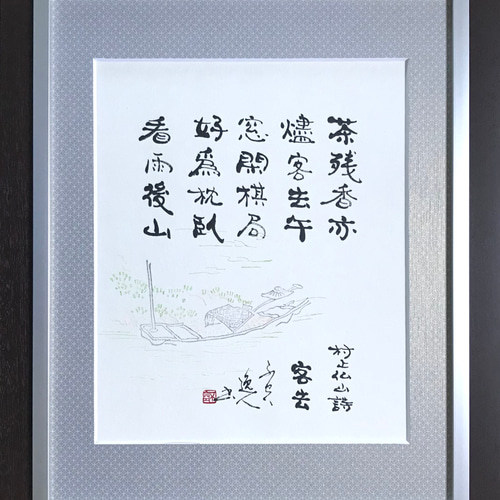 茶残香亦
燼客去午
窓閑棋局
好爲枕臥
看雨後山
村上仏山詩
客去
逸人